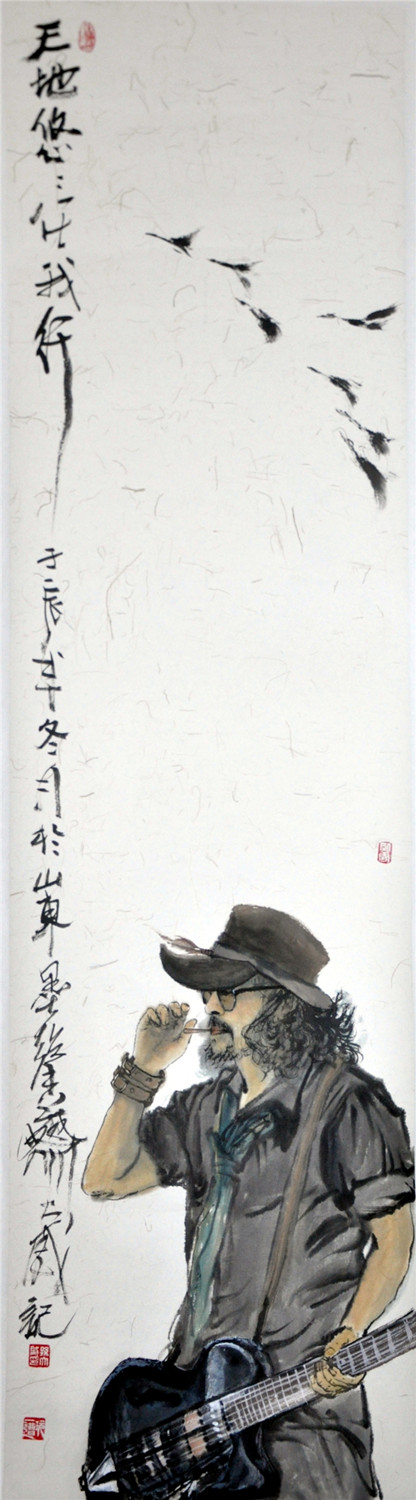 天地悠々任我行
壬辰年冬月於山東墨馨齋大威記